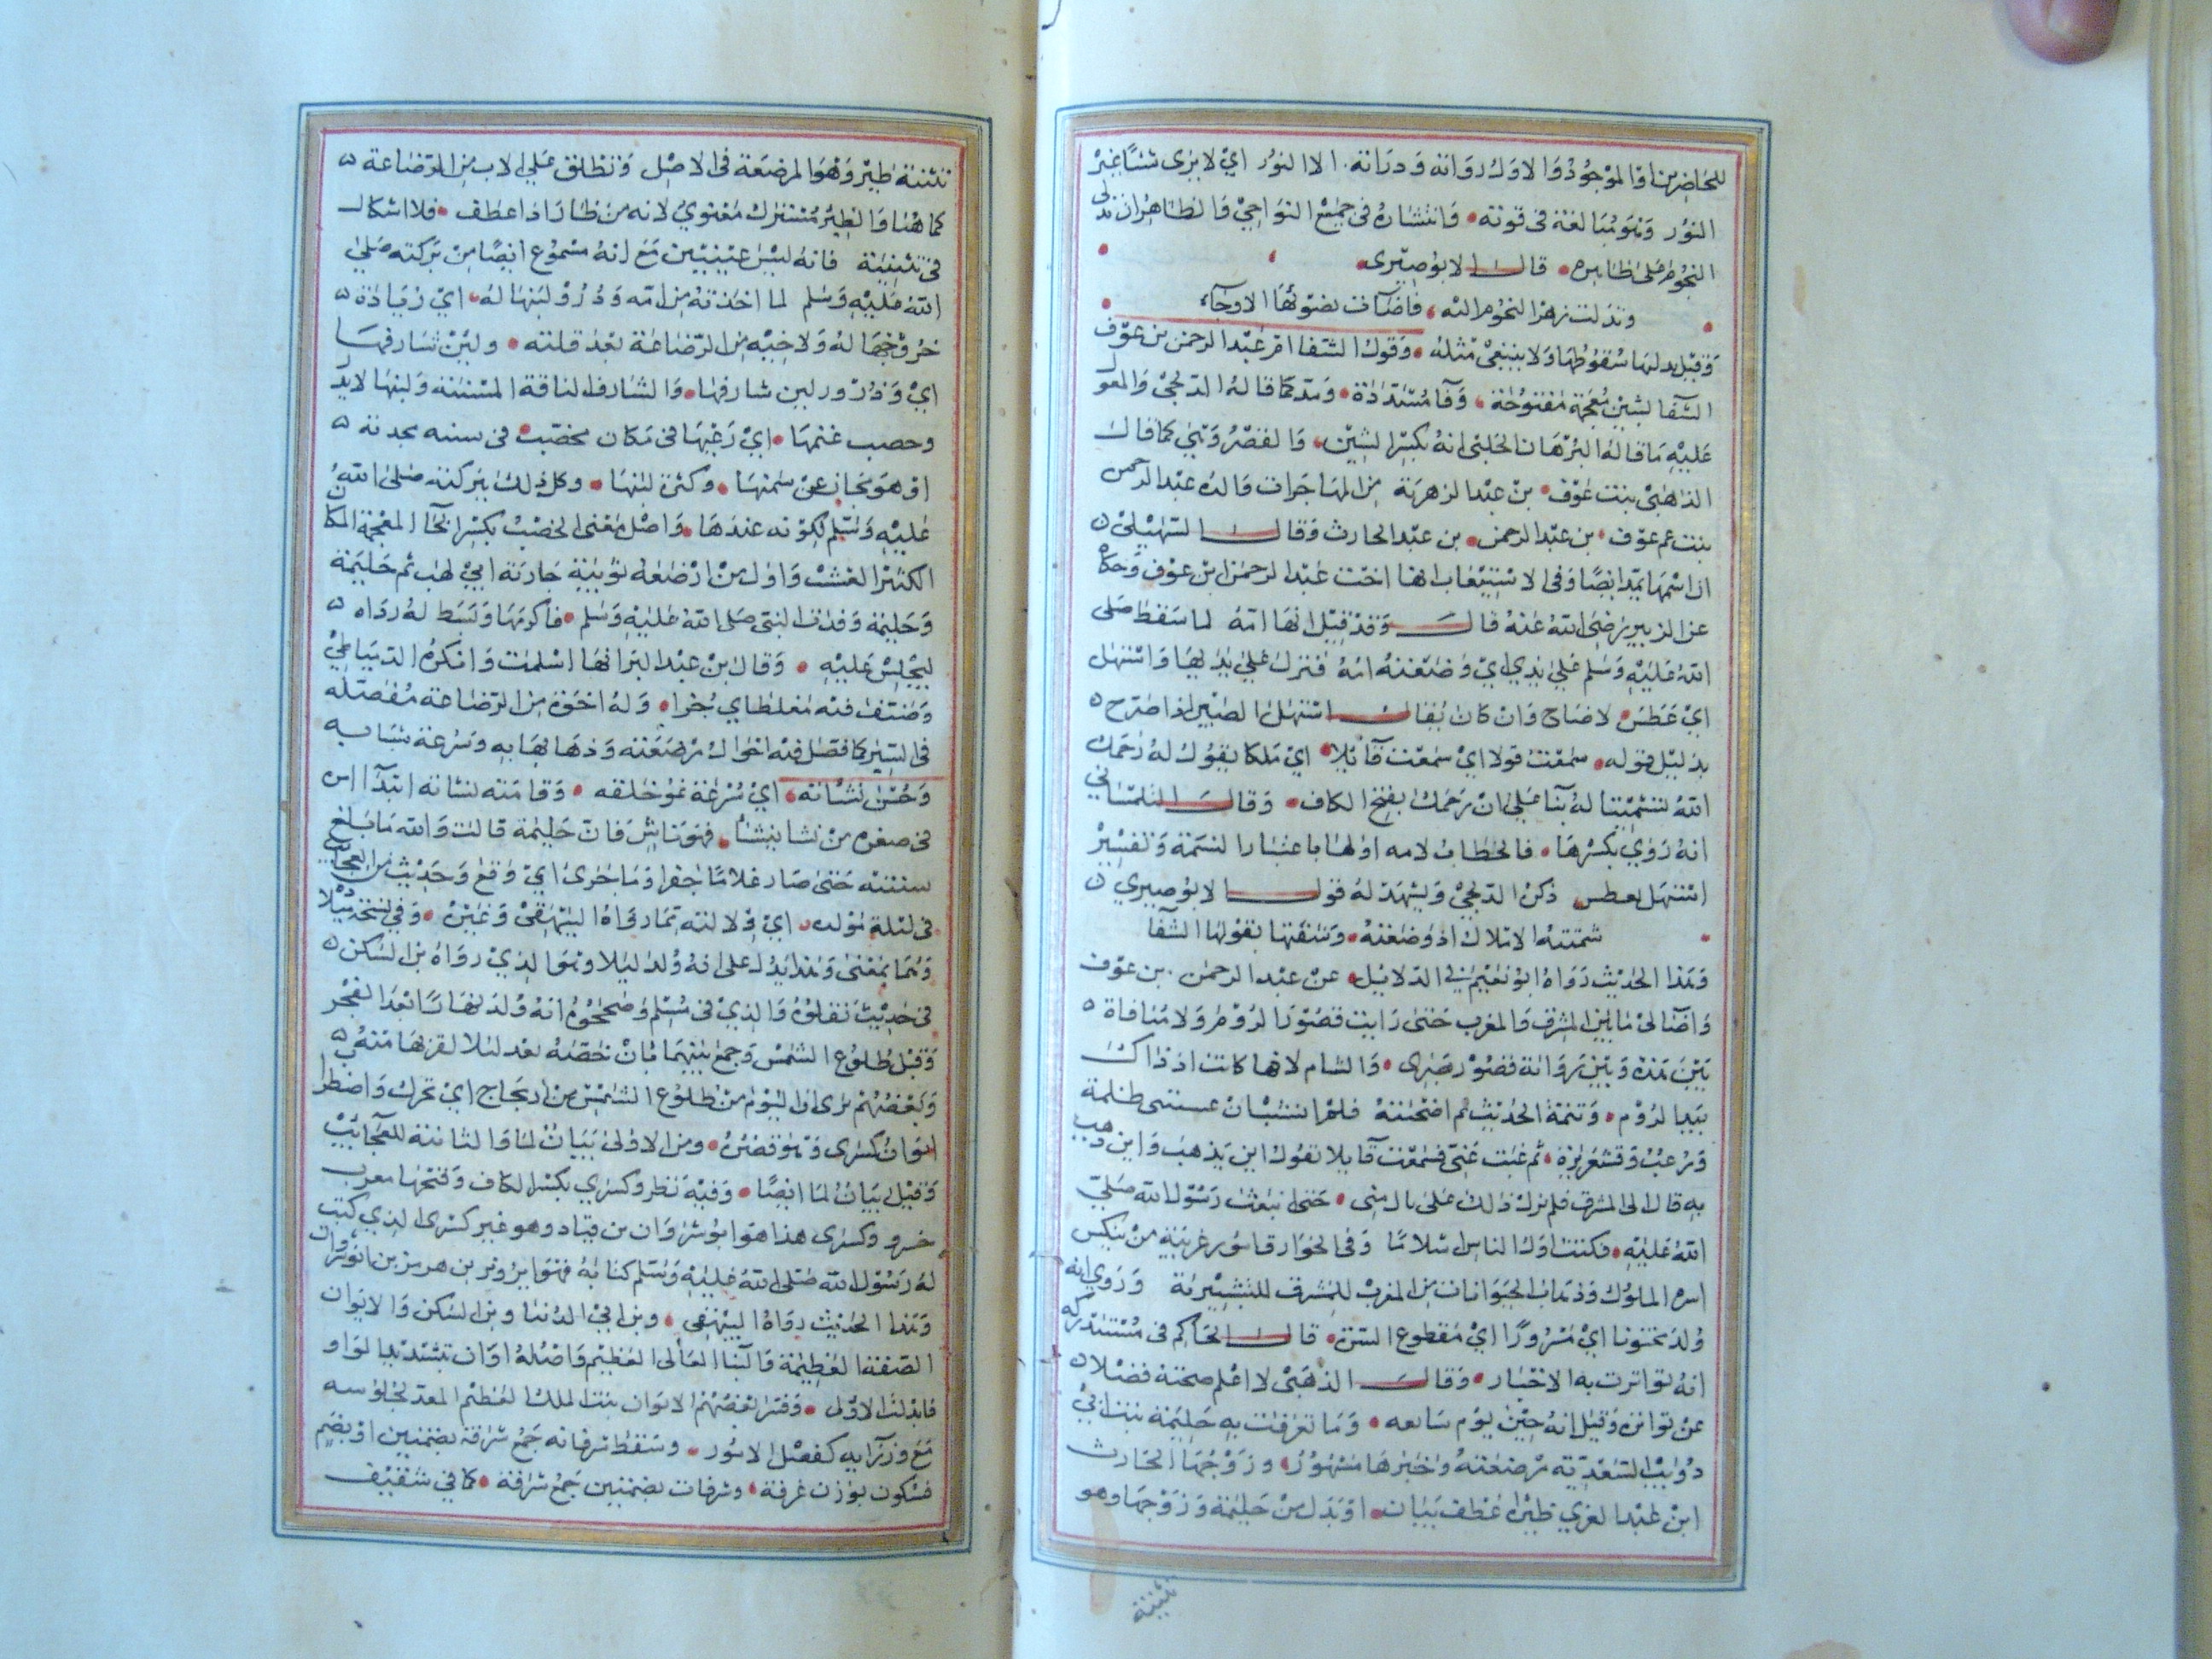 للحاضرين او الموجود والاول رواته ودراته. الا النور اي لا يرى شئا غير
النور وهو مبالغة في قوته وانتشاره في جميع النواحي والظاهر ان تدلي
النجوم على ظاهره قال الابوصيري
وتدلت زهر النجوم اليه فاضآت بضوئها الارجآء
وقيل تدليها سقوطها ولا ينبغي مثله وقول الشفا ام عبد الرحمن بن عوف
الشفا بشين معجمة مفتوحة وفا مشددة ومد كما قاله الدلجي والمعول
عليه ما قاله البرهان الحلبي انه بكسر الشين والقصر وهي كما قال
الذهبي بنت عوف بن عبد الزهرية من المهاجرات والدة عبد الرحمن
بنت عم عوف بن عبد الرحمن بن عبد الحارث وقال السهيلي
ان اسمها ايضا وفي الاستيعاب انها اخت عبد الرحمن ابن عوف وحكاه
عن الزبير رضي الله عنه قال وقد قيل انها امه لما سقط صلى
الله عليه وسلم على يدي اي وضعته امه فنزل على يديها واستهل
اي عطس لا صاح وان كان يقال استهل الصبي اذا صرخ
بدليل قوله سمعت قولا اي سمعت قآئلا اي ملكا يقول له رحمك
الله تشميتا له بنآ على ان رحمك بفتح الكاف وقال التلمساني
انه روي بكسرها فالخطاب لامه او لها باعتبار النسمة وتفسير
استهل بعطس ذكره الدلجي ويشهد له قول الابوصيري
شمتته الاملاك اذ وضعته وشفتها بقولها الشفا
وهذا الحديث رواه ابو نعيم في الدلائل عن عبد الرحمن بن عوف
واضآ لي ما بين المشرق والمغرب حتى رايت قصور الروم ولا منافاة
بين هذه وبين رواية قصور بصرى والشام لانها كانت اذ ذاك
بيد الروم وتتمة الحديث ثم اضجعته فلم انشب ان غشيتني ظلمة
ورعب وقشعريرة ثم غيب عني فسمعت قآيلا يقول اين يذهب واين ذهب
به قال الى المشرق فلم يزل ذلك على بال مني حتى بعث رسول الله صلى
الله عليه فكنت اول الناس اسلاما وفي الخوار قاسور غريبة من تنكيس
اسرة الملوك وذهاب الحيوانات من المغرب للمشرق للتبشير به وروي انه
ولد مختونا اي مسرورا اي مقطوع السرة قال الحاكم في مستدركه
انه تواترت به الاخبار وقال الذهبي لا اعلم صحته فضلا
عن تواتره وقيل انه حين يوم سابعه وما تعرفت به حليمة بنت ابي
ذؤيب السعدية مرضعته وخبرها مشهور وزوجها الحارث
ابن عبد العزي ظيراه عطف بيان او بدل من حليمة وزوجها وهو
تثنية
تثنية ظير وهو المرضعة في الاصل وتطلق على الاب من الرضاعة
كما هنا والظير مشترك معنوي لانه من ظار اذا عطف فلا اشكال
في تثنيته فانه ليس عينيين مع انه مسموع ايضا من بركته صلى
الله عليه وسلم لما اخذته من امه ودرور لبنها له اي زيادة
خروجها له ولاخيه من الرضاعة بعد قلته ولبن شارفها
اي ودرور لبن شارفها والشارف الناقة المسنة ولبنها لا يدر
وخصب غنمها اي رعيها في مكان مخصب في سنه مجدبة
او هو مجاز عن سمنها وكثرة لبنها وكل ذلك ببركته صلى الله
عليه وسلم لكونه عندها واصل معنى الخصب بكسر الخآ المعجمة المكان
الكثير العشب واول من ارضعه ثويبة جارية ابي لهب ثم حليمة
وحليمة وفدت النبي صلى الله عليه وسلم فاكرمها وبسط له رداه
ليجلس عليه وقال بن عبد البر انها اسلمت وانكره الدمياطي
وصنف فيه مغلطاي جزا وله اخوة من الرضاعة مفصلة
في السير كما فصل فيه احوال مرضعته وذهابها به وسرعة شبابه
وحسن نشاته اي سرعة نمو خلقه وقامته نشاته ابتدآ امره
في صغره من نشا ينشأ فهو ناش فان حليمة قالت والله ما بلغ
سنتيه حتى صار غلاما جفرا وما جرى اي وقع وحديث من العجآئب
في ليلة مولده اي ولادته مما رواه البيهقي وغيره وفي نسخة ميلاده
وهما بمعنى وهذا يدل على انه ولد ليلا وهو الذي رواه بن السكن
في حديث نقلوه والذي في مسلم وصححوه انه ولد نهارا بعد الفجر
وقبل طلوع الشمس وجمع بينهما بان نخصه بعد ليلا لقربها منه
وبعضهم يرى ان اليوم من طلوع الشمس من ارتجاج اي تحرك واضطراب
ايوان كسرى وهو قصره ومن الاولى بيان لما والثانية للعجآئب
وقيل بيان لما ايضا وفيه نظر وكسري بكسر الكاف وفتحها معرب
خسرو وكسرى هذا هو انوشروان بن قباد وهو غير كسرى الذي كتب
له رسول الله صلى الله عليه وسلم كتابه فهو ابرويز بن هرمز بن انوشروان
وهذا الحديث رواه البيهقي وبن ابي الدنيا وبن السكن والايوان
الصفة العظيمة والبنآ العالي العظيم واصله اوان بتشديد الواو
فابدلت الاولى وفسر بعضهم الايوان ببنت الملك العظيم المعد لجلوسه
مع وزرآيه كفصل الامور وسقط شرفاته جمع شرافة بضمتين او بضم
فسكون بوزن غرفة وشرفات بضمتين جمع شرفة كما في تثقيف